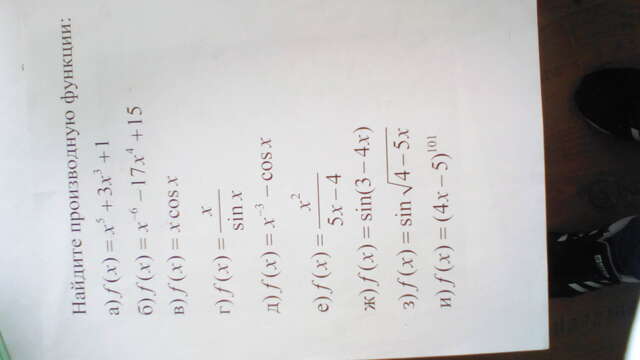 Найдите производную функции:
а) f(x) = x⁵ + 3x³ + 1
б) f(x) = x⁻⁶ − 17x⁴ + 15
в) f(x) = x cos x
г) f(x) = x / sin x
д) f(x) = x⁻³ − cos x
е) f(x) = x² / 5x − 4
ж) f(x) = sin(3 − 4x)
з) f(x) = sin √4 − 5x
и) f(x) = (4x − 5)¹⁰¹